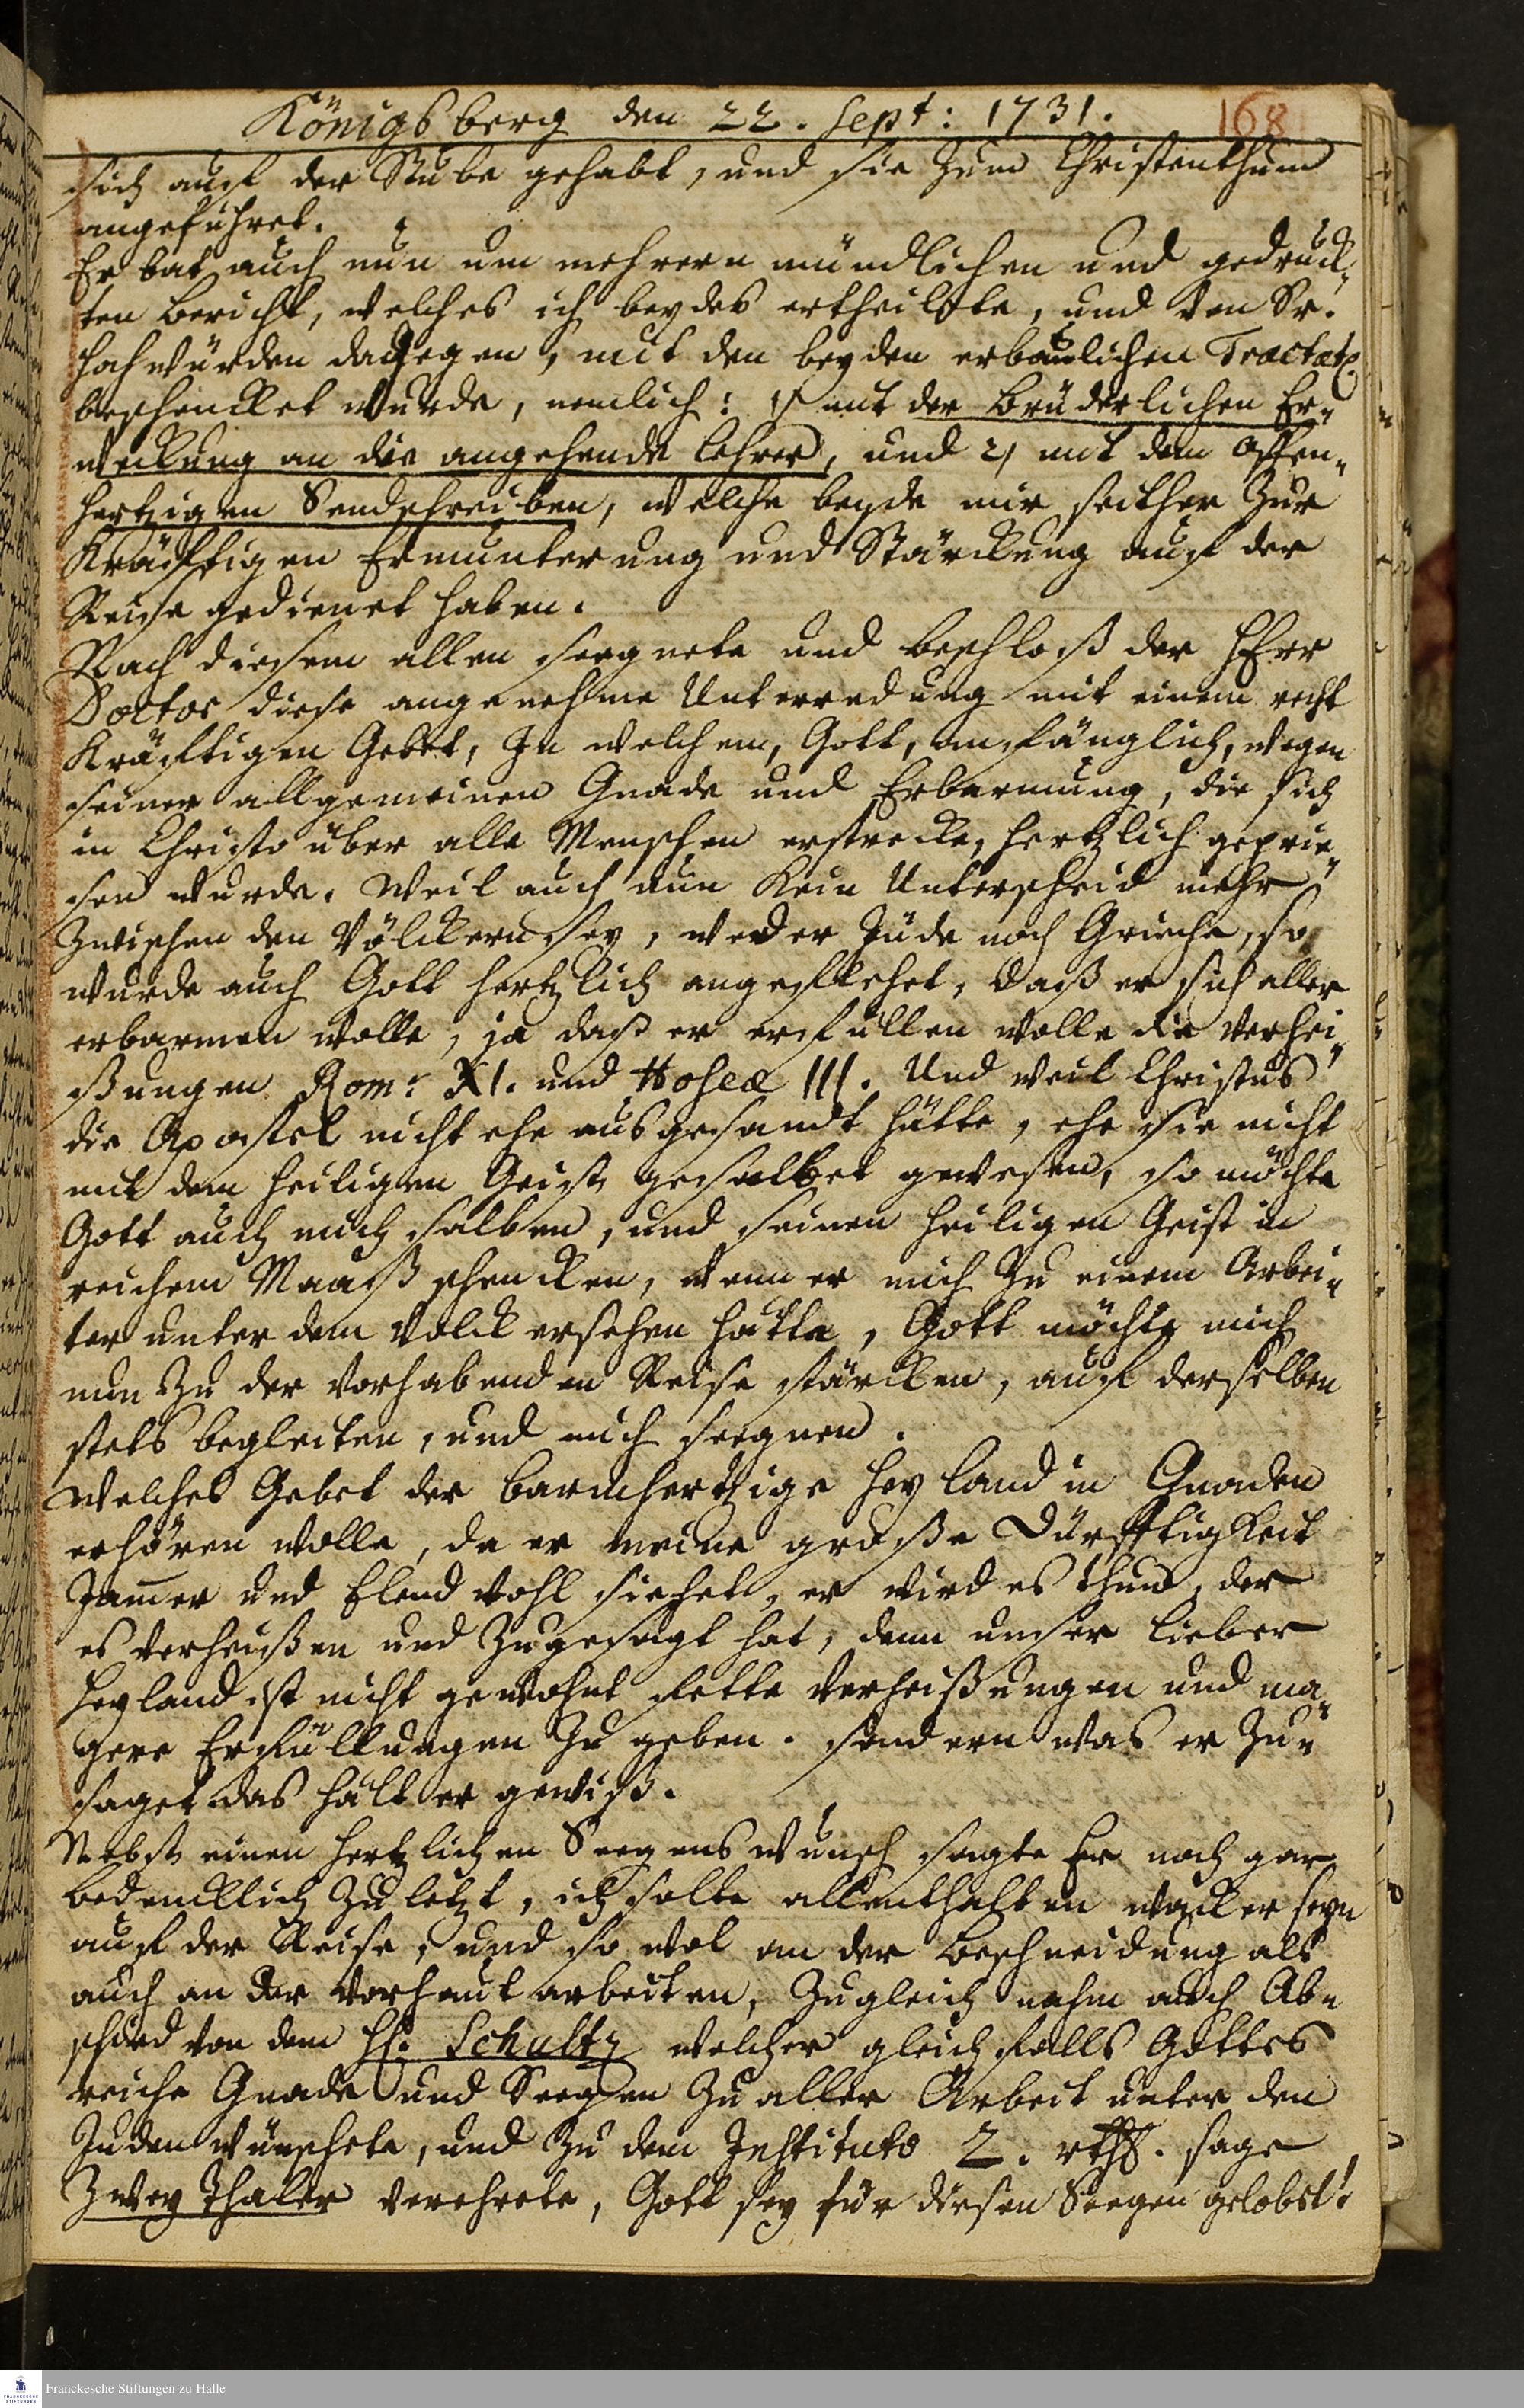 Königsberg den 22. Sept: 1731.
168
sich auf der Stube gehabt, und sie zum Christenthum
angeführet.
Er bat auch nun um mehrern mündlichen und gedruck-
ten Bericht, welches ich beydes ertheilete, und von Sr.
Hochwürden dagegen, mit den beyden erbaulichen Tractat.
beschencket wurde, nemlich: 1) mit der Brüderlichen Er-
weckung an die angehende Lehrer, und 2) mit dem Offen-
hertzigen Sendschreiben, welche beyde mir seither zur
Kräfftigen Ermunterung und Stärckung auf der
Reise gedienet haben.
Nach diesem allen seegnete und beschloß der HErr
Doctor diese angenehme Unterredung mit einem recht
Kräfftigen Gebet, In welchem, Gott, anfänglich, wegen
seiner allgemeinen Gnade und Erbarmung, die sich
in Christo über alle Menschen erstrecke, hertzlich geprie-
sen wurde. Weil auch nun kein Unterscheid mehr
Zwischen den Völckern sey, weder Jude noch Grieche, so
wurde auch Gott hertzlich angeflehet, daß er sich aller
erbarmen wolle, ja daß er erfüllen wolle die Verhei-
ßungen Rom: XI. und Hoseæ III. Und weil Christus
die Apostel nicht ehe ausgesandt hätte, ehe sie nicht
mit dem heiligen Geist gesalbet gewesen, so möchte
Gott auch mich salben, und seinen heiligen Geist in
reichem Maaß schencken, wenn er mich zu einem Arbei-
ter unter dem Volck ersehen hätte, Gott möchte mich
nun zu der vorhabenden Reise stärcken, auf derselben
stets begleiten, und mich seegnen.
Welches Gebet der barmhertzige Heyland in Gnaden
erhören wolle, da er meine große Dürfftigkeit
Jam̃er und Elend wohl siehet, er wird es thun, der
es verheißen und zugesagt hat, denn unser lieber
Heyland ist nicht gewohnt fette Verheißungen und ma-
gere Erfüllungen zu geben. sondern was er zu-
saget das hält er gewiß.
Nebst einen hertzlichen Seegenswunsch sagte Er noch gar
bedencklich zuletzt, ich solte allenthalben wacker seyn
auf der Reise, und so wol an der Beschneidung als
auch an der Vorhaut arbeiten, Zugleich nahm auch Ab-
schied von dem H. Schultz welcher gleichfalls Gottes
reiche Gnade und Seegen zu aller Arbeit unter den
Juden wünschete, und zu dem Instituto 2. rthl. sage
Zwey Thaler verehrete, Gott sey für diesen Seegen gelobet!
Franckesche Stiftungen zu Halle